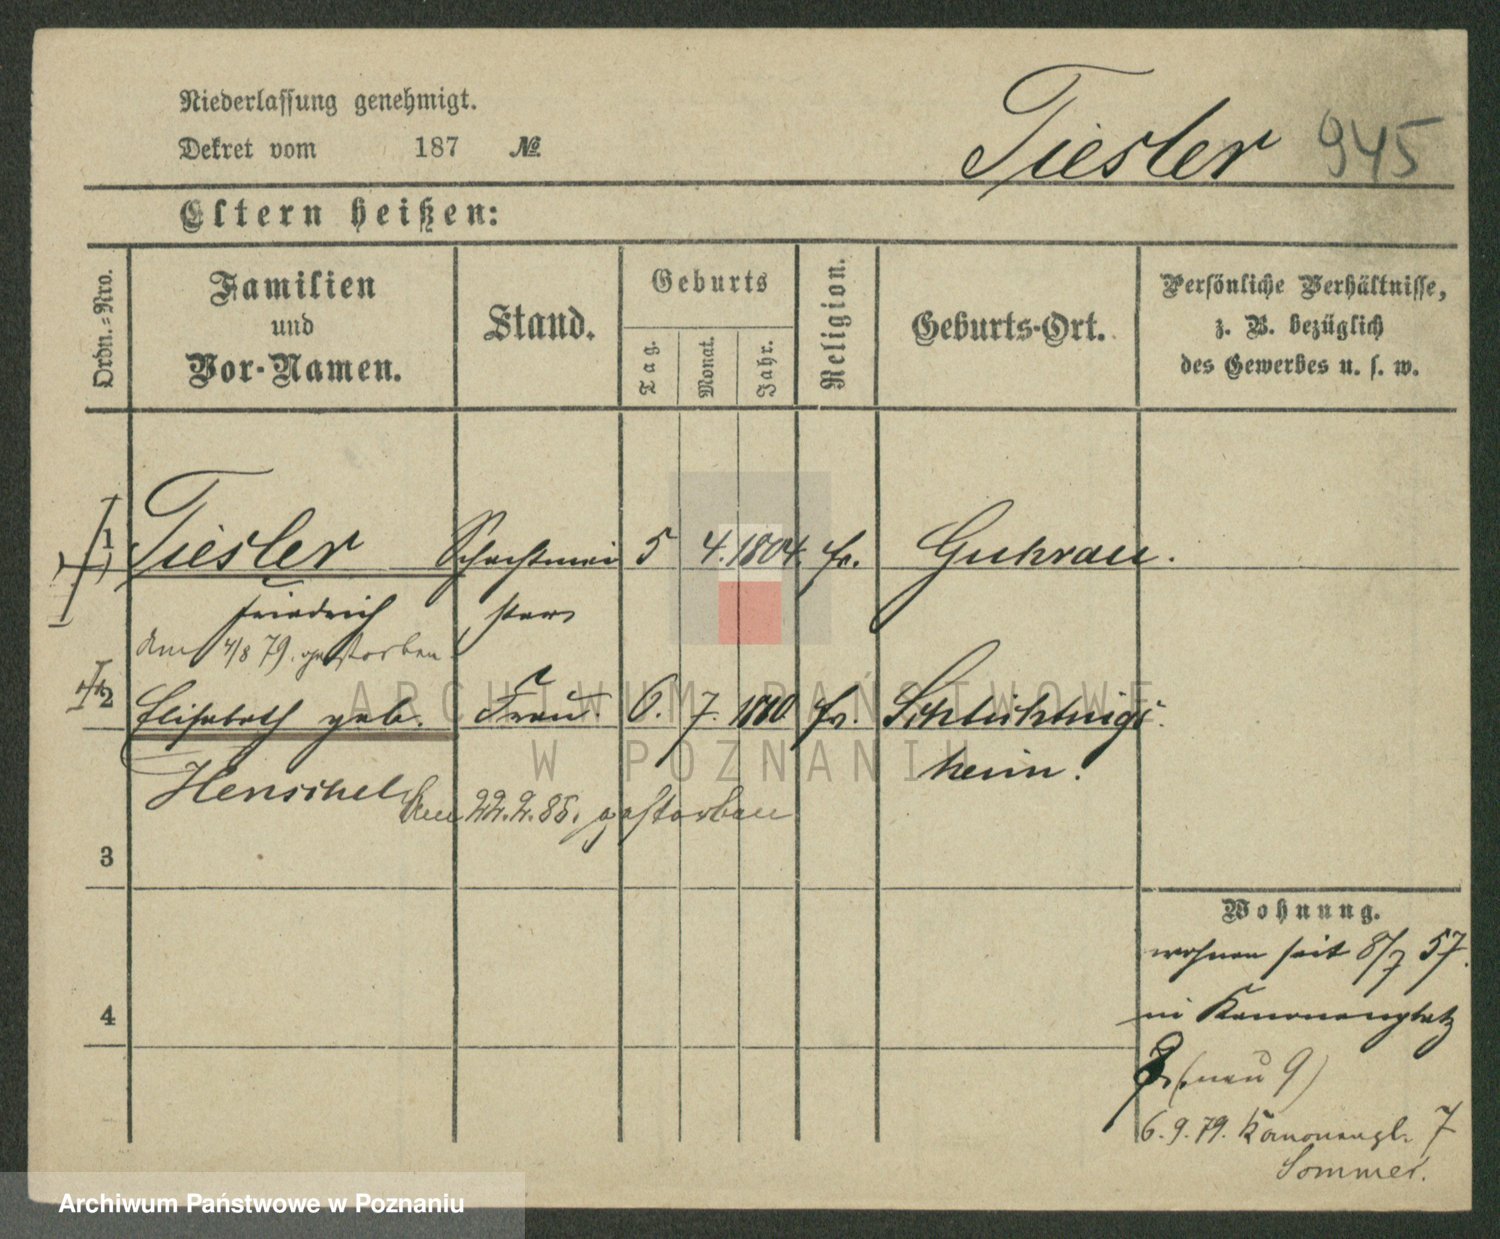 Niederlassung genehmigt.
Dekret vom 187 №
Tiesler 945
Eltern heißen:
Ordn.-Nro.
Familien
und
Vor-Namen.
Stand.
Geburts
Tag.
Monat.
Jahr.
Religion.
Geburts-Ort.
Persönliche Verhältnisse,
z. B. bezüglich
des Gewerbes u. s. w.
1 Tiesler Schachtmei 5 4. 1804. Guhrau.
Friedrich ster
Am 4/8 79. gestorben
2 Elisabeth geb. Frau. 6. 7. Schlichtings
Henschel heim.
Am 22.2.85. gestorben
3
4
Wohnung.
wohnen seit 8/7 57.
in Kanonenplatz
(neu 9)
6.9.79. Kanonenpl. 7
Sommer.
ARCHIWUM PAŃSTWOWE
W POZNANIU
Archiwum Państwowe w Poznaniu